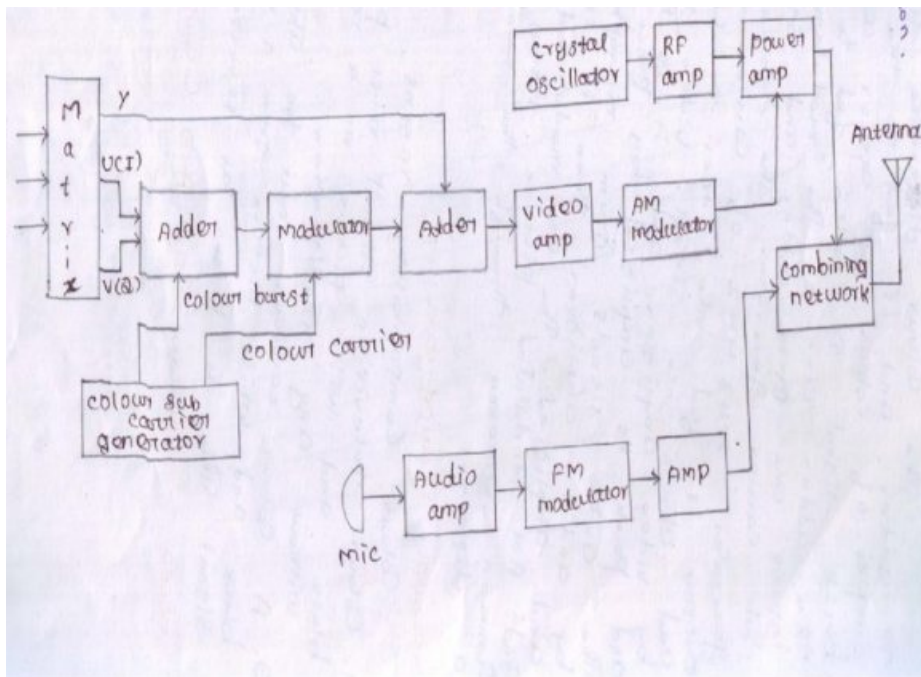 Crystal
oscillator
RF
amp
power
amp
Antenna
M
a
t
r
i
x
Y
U(I)
V(Q)
Adder
Modulator
Adder
video
amp
AM
modulator
Combining
network
colour burst
colour carrier
colour sub
carrier
generator
Mic
Audio
amp
FM
modulator
AMP